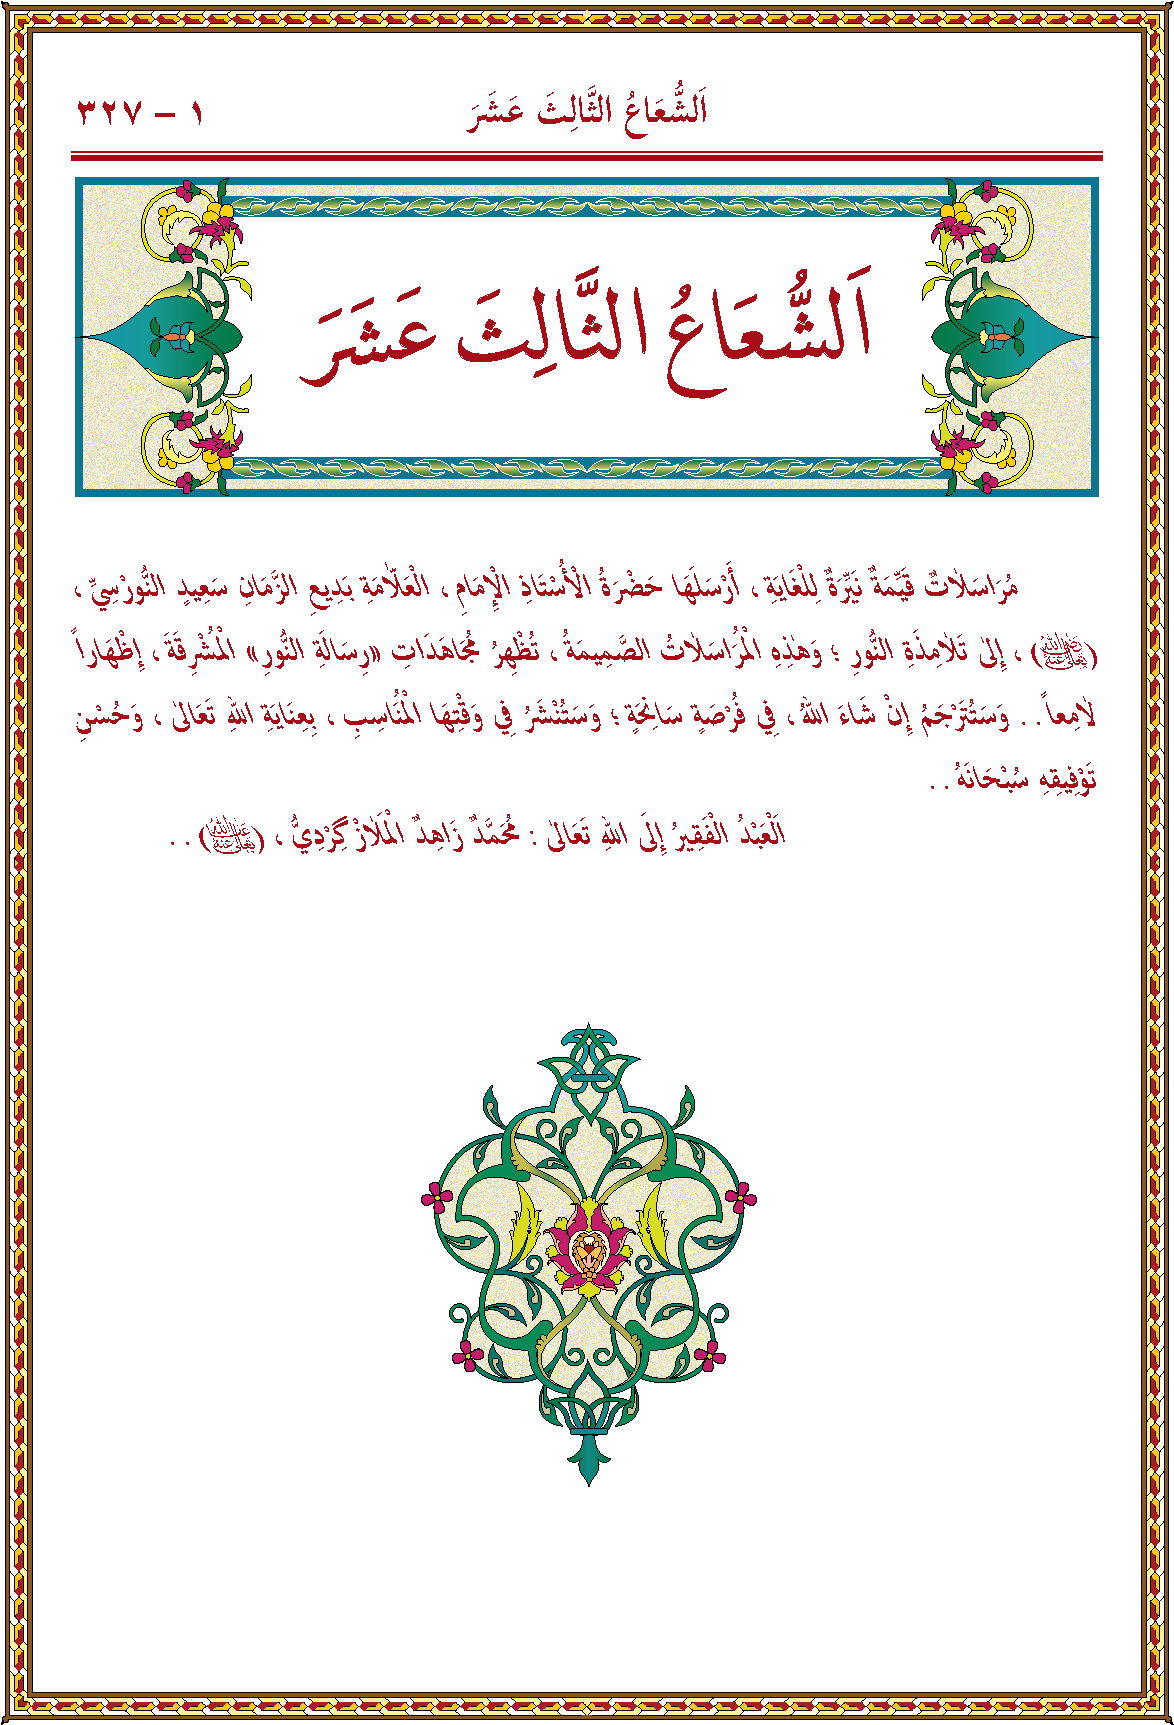 اَلشُّعَاعُ الثَّالِثَ عَشَرَ ١ – ٣٢٧
اَلشُّعَاعُ الثَّالِثَ عَشَرَ
مُرَاسَلَاتٌ قَيِّمَةٌ نَيِّرَةٌ لِلْغَايَةِ ، أَرْسَلَهَا حَضْرَةُ الْأُسْتَاذِ الْإِمَامِ ، الْعَلَّامَةِ بَدِيعِ الزَّمَانِ سَعِيدٍ النُّورْسِيِّ ،
(رَضِيَ اللهُ تَعَالَى عَنْهُ) ، إِلىٰ تَلَامِذَةِ النُّورِ ؛ وَهٰذِهِ الْمُرَاسَلَاتُ الصَّمِيمَةُ ، تُظْهِرُ مُجَاهَدَاتِ «رِسَالَةِ النُّورِ» الْمُشْرِقَةَ ، إِظْهَاراً
لَامِعاً . . وَسَتُتَرْجَمُ إِنْ شَاءَ اللهُ ، فِي فُرْصَةٍ سَانِحَةٍ ؛ وَسَتُنْشَرُ فِي وَقْتِهَا الْمُنَاسِبِ ، بِعِنَايَةِ اللهِ تَعَالىٰ ، وَحُسْنِ
تَوْفِيقِهِ سُبْحَانَهُ . .
اَلْعَبْدُ الْفَقِيرُ إِلَى اللهِ تَعَالىٰ : مُحَمَّدٌ زَاهِدٌ الْمَلَازْكِرْدِيُّ ، ( ) . .